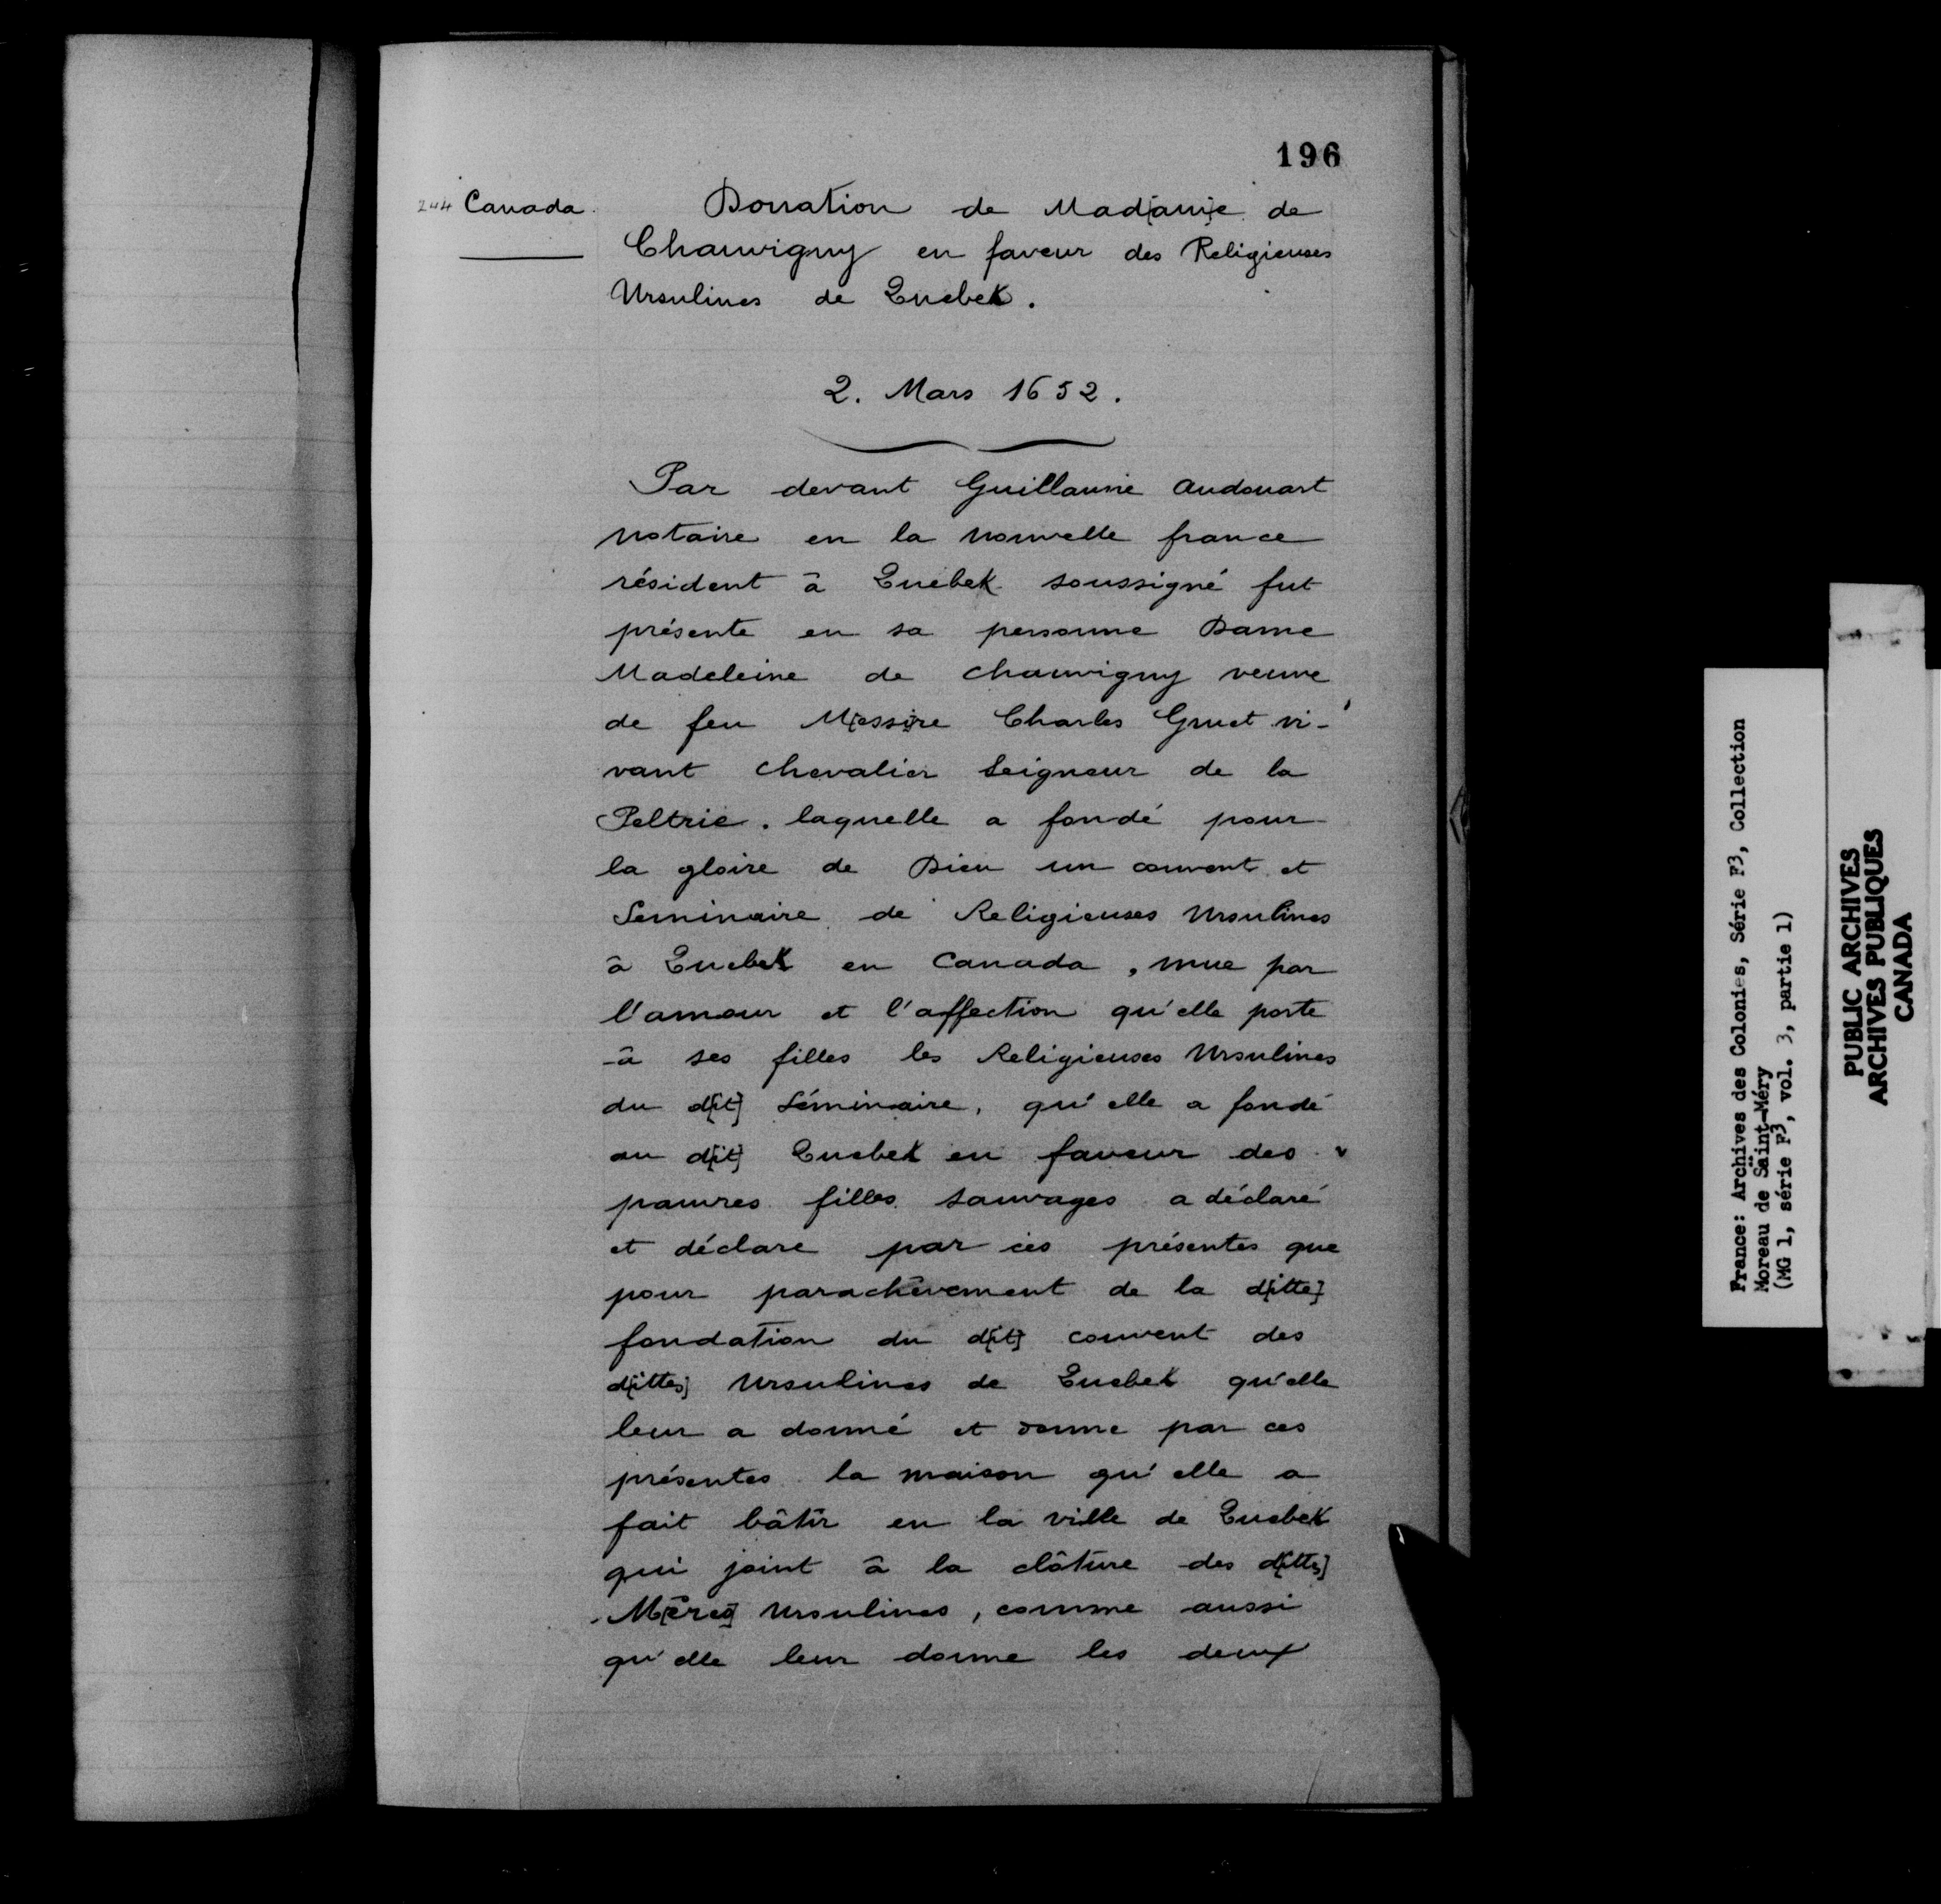 196
244 Canada.
Donation de Mad[am]e de
Chauvigny en faveur des Religieuses
Ursulines de Quebek.
2. Mars 1652.
Par devant Guillaume Audouart
notaire en la nouvelle france
résident à Quebek soussigné fut
présente en sa personne Dame
Madeleine de Chauvigny veuve
de feu M[essi]re Charles Gruet vi-
vant chevalier Seigneur de la
Peltrie. laquelle a fondé pour
la gloire de Dieu un couvent et
Seminaire de Religieuses Ursulines
à Quebek en Canada, mue par
l'amour et l'affection qu'elle porte
à ses filles les Religieuses Ursulines
du d[it] Séminaire, qu'elle a fondé
au d[it] Quebek en faveur des
pauvres filles sauvages a déclaré
et déclare par ces présentes que
pour parachèvement de la d[itte]
fondation du d[it] couvent des
d[ittes] Ursulines de Quebek qu'elle
leur a donné et donne par ces
présentes la maison qu'elle a
fait bâtir en la ville de Quebek
qui joint à la clôture des d[ittes]
M[ères] Ursulines, comme aussi
qu'elle leur donne les deux
France: Archives des Colonies, Série F3, Collection
Moreau de Saint-Méry
(MG 1, série F3, vol. 3, partie 1)
PUBLIC ARCHIVES
ARCHIVES PUBLIQUES
CANADA